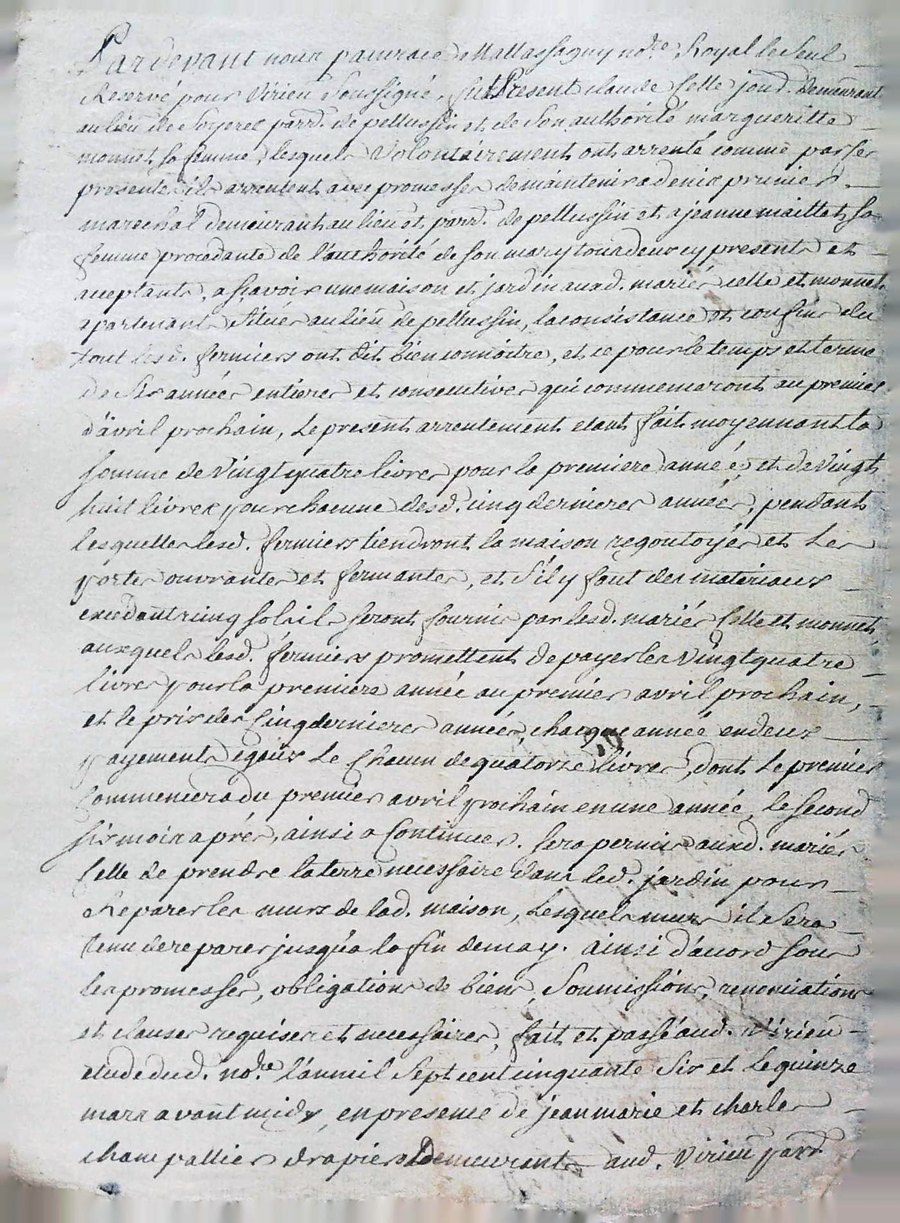 Pardevant nous pancrace Mallassagny no.re Royal le seul
Reservé pour Virieu soussigné, fut Present claude Celle jour.d demeurant
au lieu de Soyeres parr.e de pellussin et de son authorité margueritte
monnet sa femme, lesquels volontairement ont arrenté comme par ses
presentes ils arrentent avec promesses de maintenir a denis prunier
marechal demeurant au lieu et parr.e de pellussin et a jeanne maillet sa
femme procedante de l'authorité de son mary tous deux cy presents et
aceptants, a sçavoir une maison et jardin auxd. mariés celle et monnet
apartenants situés au lieu de pellussin, la consistance et confins du
tout lesd. fermiers ont dit bien connoitre, et ce pour le temps et terme
de six années entieres et consecutives qui commenceront au premier
d'avril prochain, Le present arrentement etant fait moyennant la
somme de vingt quatre livres pour la premiere année, et de vingt
huit livres pour chacune desd. cinq dernieres années, pendant
lesquelles lesd. fermiers tiendront la maison regoutoyée et Les
portes ouvrantes et fermantes, et s'il y faut des materiaux
excedant cinq sols ils seront fournis par lesd. mariés Celle et monnet,
auxquels lesd. fermiers promettent de payer les vingt quatre
livres pour la premiere année au premier avril prochain,
et le prix des Cinq dernieres années, chaque année en deux
payements egaux Le Chacun de quatorze livres, dont Le premier
Commencera du premier avril prochain en une année, le second
six mois aprés, ainsi a Continuer. sera permis auxd. mariés
Celle de prendre la terre necessaire dans led. jardin pour
Reparer les murs de lad. maison, Lesquels murs il sera
tenu de reparer jusqu'a la fin de may. ainsi d'acord sous
les promesses, obligations de biens, soumissions, renonciations
et clauses requises et necessaires, fait et passé aud. Virieu
etude dud. no.re l'an mil sept cent cinquante six et Le quinze
mars avant midy, en presence de jean marie et charles
champallier drapiers Demeurants aud. Virieu parr.e